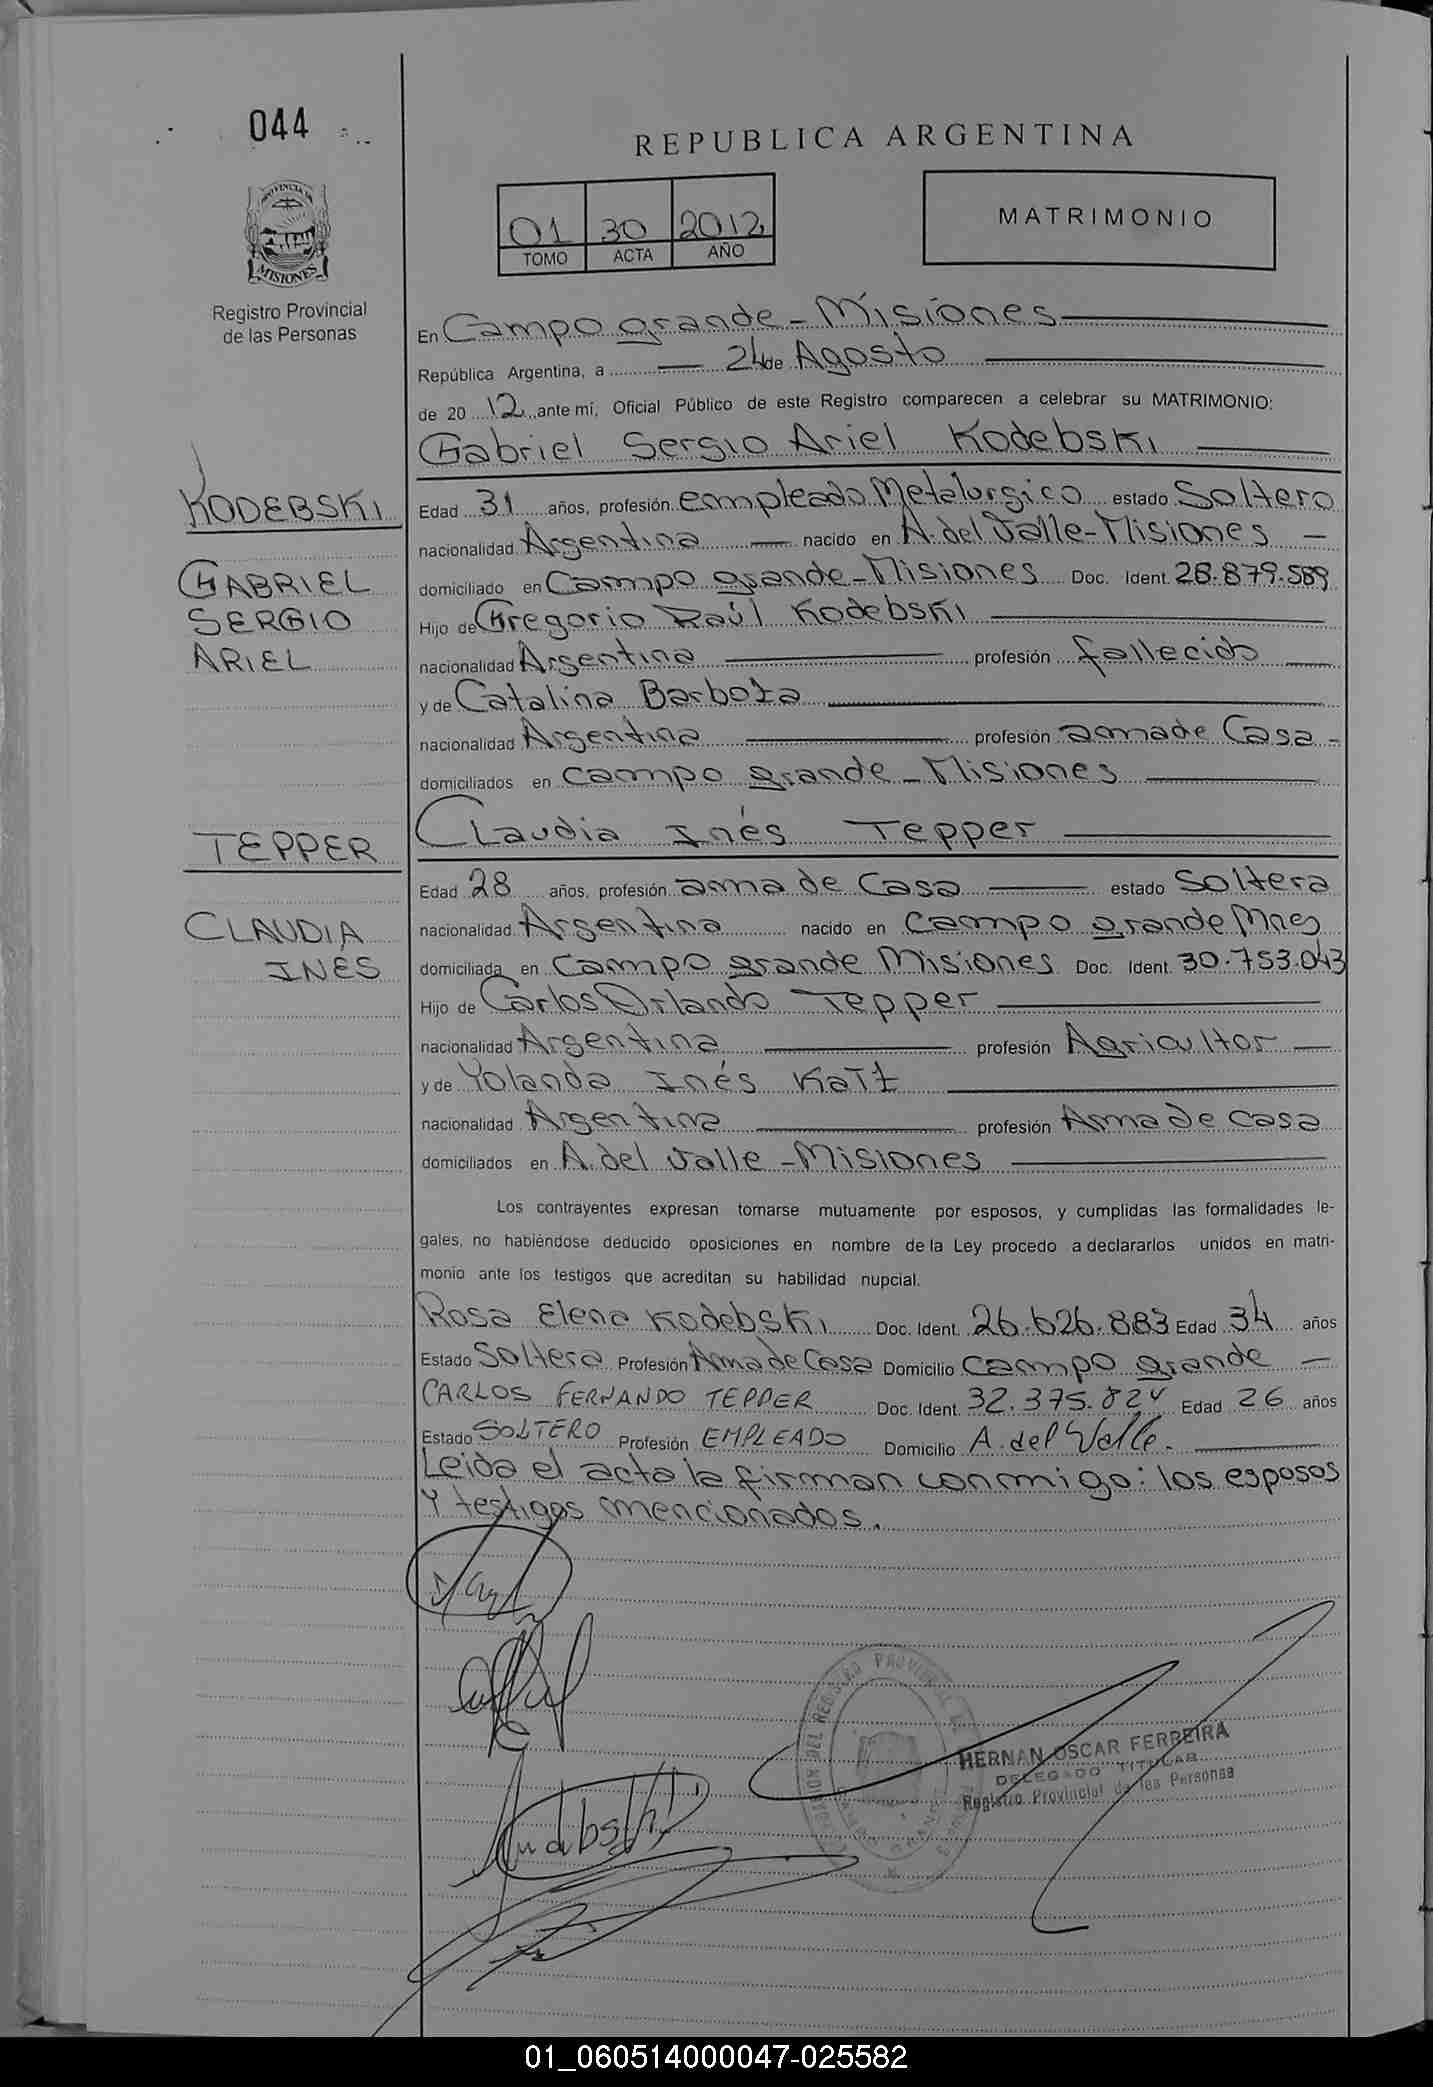 044
REPUBLICA ARGENTINA
PROVINCIA DE
MISIONES
Registro Provincial
de las Personas
01 30 2012
TOMO ACTA AÑO
MATRIMONIO
En Campo grande - Misiones
República Argentina, a 24 de Agosto
de 20 12 ante mí, Oficial Público de este Registro comparecen a celebrar su MATRIMONIO:
Gabriel Sergio Ariel Kodebski
KODEBSKI
Edad 31 años, profesión empleado Metalurgico estado Soltero
nacionalidad Argentina nacido en A. del Valle - Misiones
GABRIEL
domiciliado en Campo grande - Misiones Doc. Ident. 28.879.589
SERGIO
Hijo de Gregorio Raúl Kodebski
ARIEL
nacionalidad Argentina profesión fallecido
y de Catalina Barboza
nacionalidad Argentina profesión ama de Casa
domiciliados en Campo grande - Misiones
TEPPER
Claudia Inés Tepper
Edad 28 años, profesión ama de Casa estado Soltera
CLAUDIA
nacionalidad Argentina nacido en Campo grande Mnes
INÉS
domiciliada en Campo grande Misiones Doc. Ident. 30.753.043
Hijo de Carlos Orlando Tepper
nacionalidad Argentina profesión Agricultor
y de Yolanda Inés Katz
nacionalidad Argentina profesión Ama de Casa
domiciliados en A. del Valle - Misiones
Los contrayentes expresan tomarse mutuamente por esposos, y cumplidas las formalidades le-
gales, no habiéndose deducido oposiciones en nombre de la Ley procedo a declararlos unidos en matri-
monio ante los testigos que acreditan su habilidad nupcial.
Rosa Elena Kodebski Doc. Ident. 26.626.883 Edad 34 años
Estado Soltera Profesión Ama de Casa Domicilio Campo grande
CARLOS FERNANDO TEPPER Doc. Ident. 32.375.824 Edad 26 años
Estado SOLTERO Profesión EMPLEADO Domicilio A. del Valle.
Leida el acta la firman conmigo: los esposos
Y testigos mencionados.
HERNAN OSCAR FERREIRA
DELEGADO TITULAR
Registro Provincial de las Personas
01_060514000047-025582